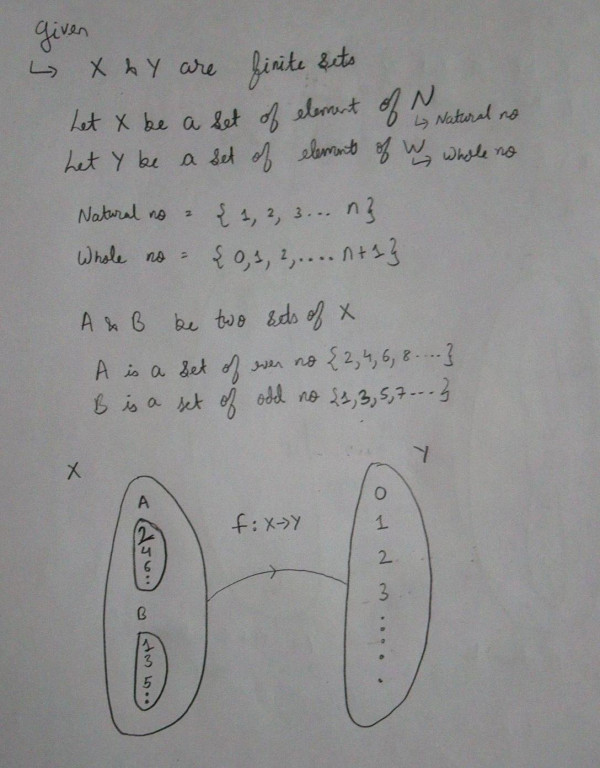 Given
↳ X & Y are finite sets
Let X be a set of element of N
↳ Natural no
Let Y be a set of elements of W
↳ Whole no
Natural no = { 1, 2, 3... n }
Whole no = { 0, 1, 2, .... n+1 }
A & B be two sets of X
A is a set of even no {2,4,6,8....}
B is a set of odd no {1,3,5,7...}
X
Y
A
2
4
6
:
B
1
3
5
:
f : X→Y
0
1
2
3